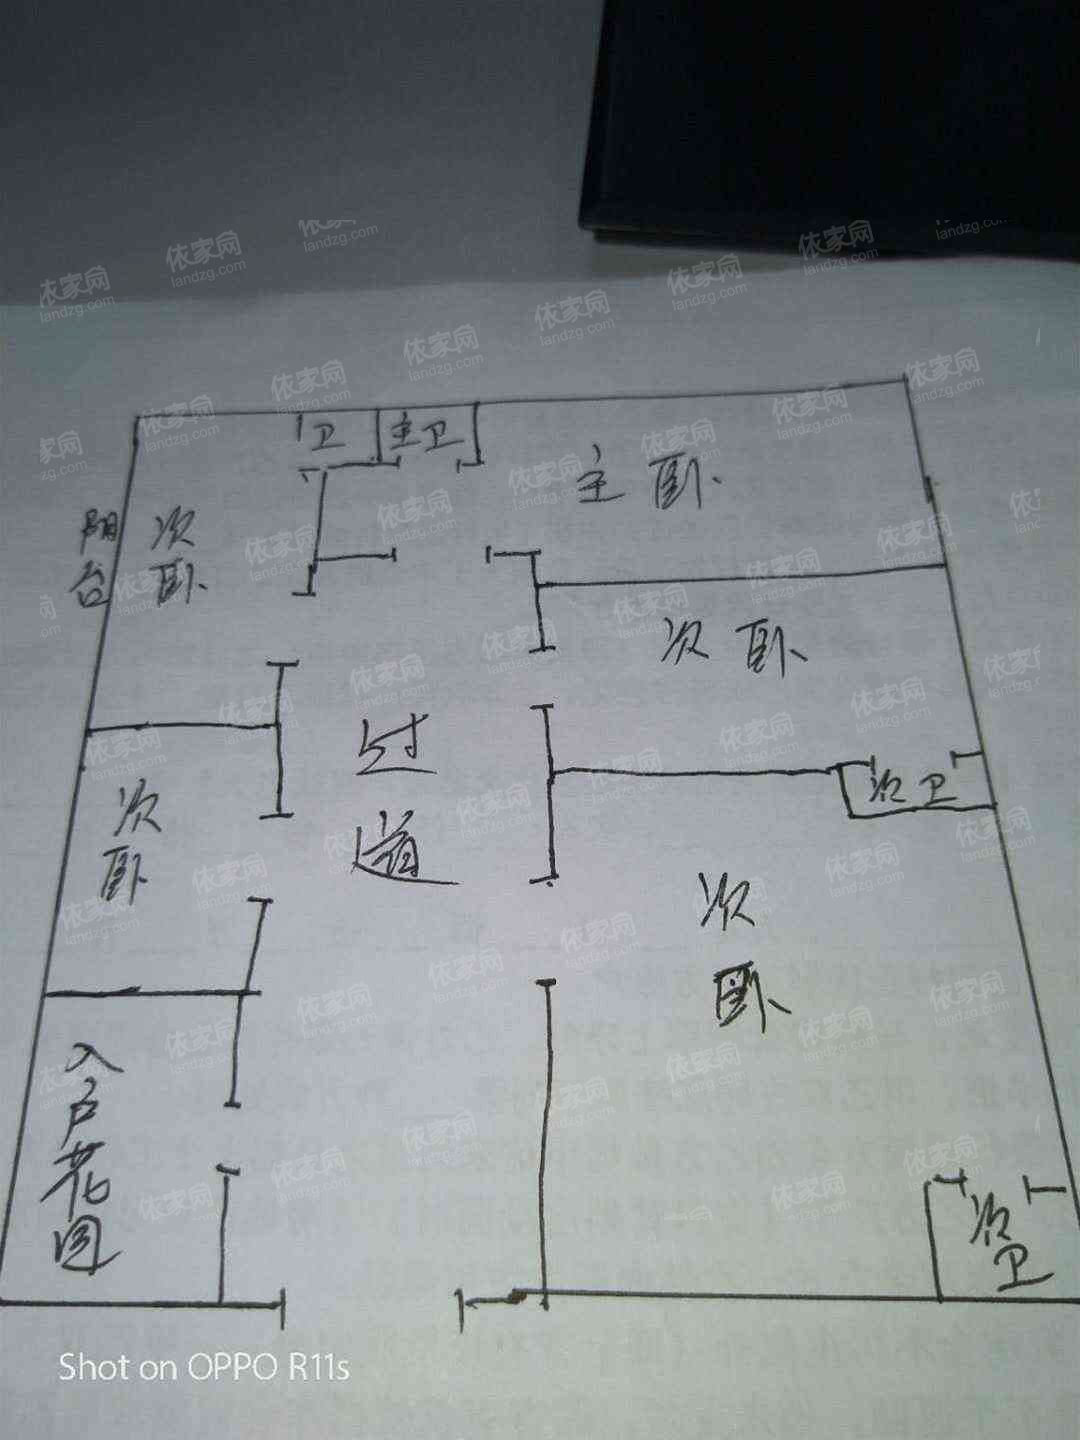 卫
主卫
主卧
阳台
次卧
次卧
过道
次卫
次卧
次卧
入户花园
次卫
Shot on OPPO R11s
依家网
landzg.com